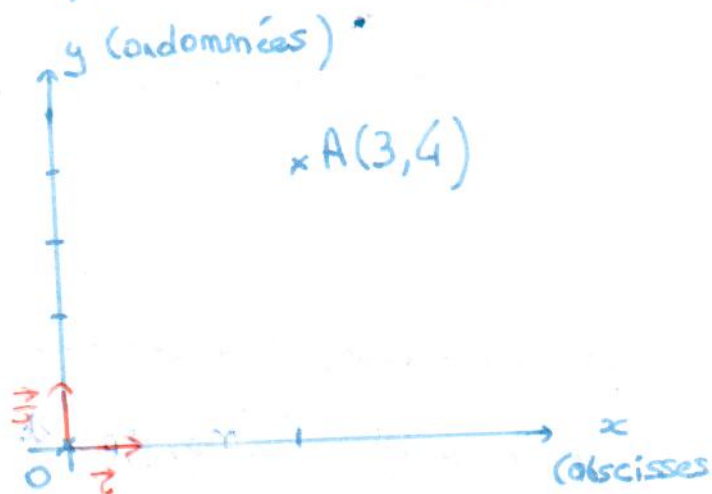 y (ordonnées)
A(3,4)
O
x
(abscisses